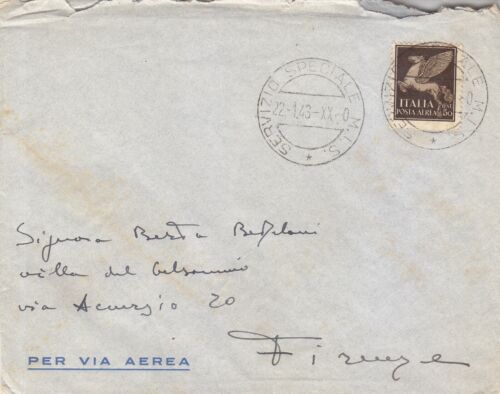 SERVIZIO SPECIALE M.I.S.
22-1.43-XX 0
SERVIZIO SPECIALE M.I.S.
0
ITALIA
POSTA AEREA
Signora Berta
villa del Gelsomino
via Accursio 20
Firenze
PER VIA AEREA